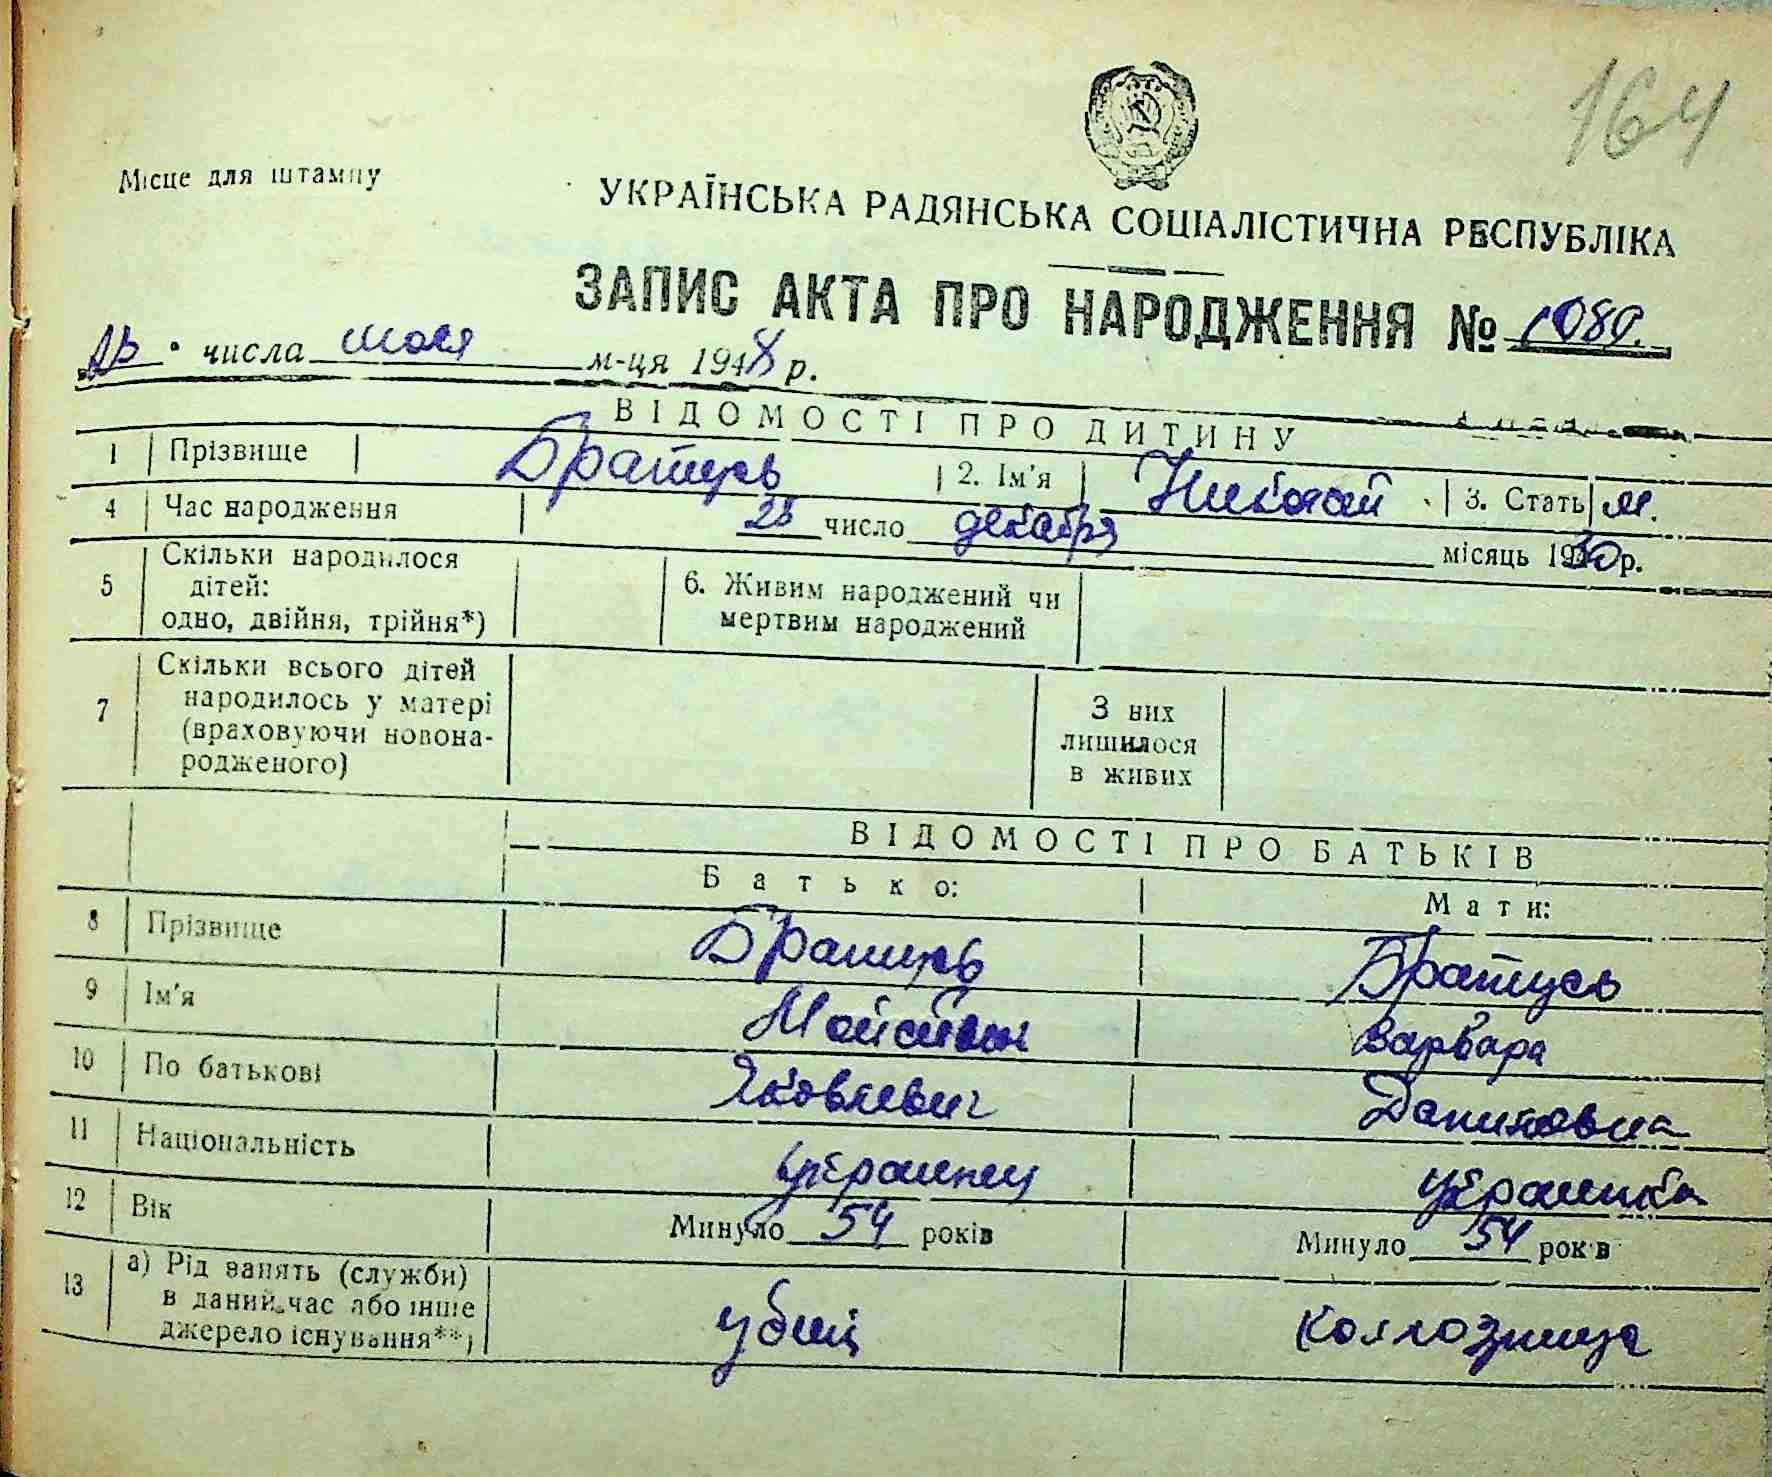 164
Місце для штампу
УКРАЇНСЬКА РАДЯНСЬКА СОЦІАЛІСТИЧНА РЕСПУБЛІКА
ЗАПИС АКТА ПРО НАРОДЖЕННЯ №
числа июля м-ця 1948 р.
ВІДОМОСТІ ПРО ДИТИНУ
1 Прізвище Братусь 2. Ім'я Николай 3. Стать м.
4 Час народження число декабря місяць 1930 р.
5 Скільки народилося дітей: одно, двійня, трійня*) 6. Живим народжений чи мертвим народжений
7 Скільки всього дітей народилось у матері (враховуючи новонародженого) З них лишилося в живих
ВІДОМОСТІ ПРО БАТЬКІВ
Батько: Мати:
8 Прізвище Братусь Братусь
9 Ім'я Варвара
10 По батькові Яковлевич Даниловна
11 Національність украинец украинка
12 Вік Минуло 54 років Минуло 54 років
13 а) Рід занять (служби) в даний час або інше джерело існування**) колхозница